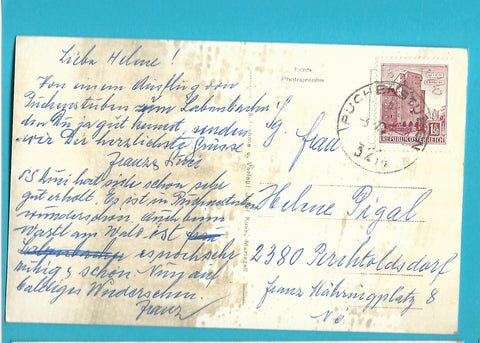 Liebe Helme!
Von einem Ausflug von
Puchenstuben zum Labenbachs
den Du ja gut kennst, senden
wir Dir herzlichste Grüsse
Franz
PS hat sich schon sehr
gut erholt. Es ist in Puchenstuben
wunderschön. Auch beim
Wastl am Wald ist
es noch sehr
ruhig & schön. Nun auf
baldiges Wiedersehen.
Franz
Echte
Photographie
PUCHENSTUBEN
3214
REPUBLIK ÖSTERREICH
Sg. Frau
Helme Pigal
2380 Perchtoldsdorf
Franz Nähringplatz 8
Nö.